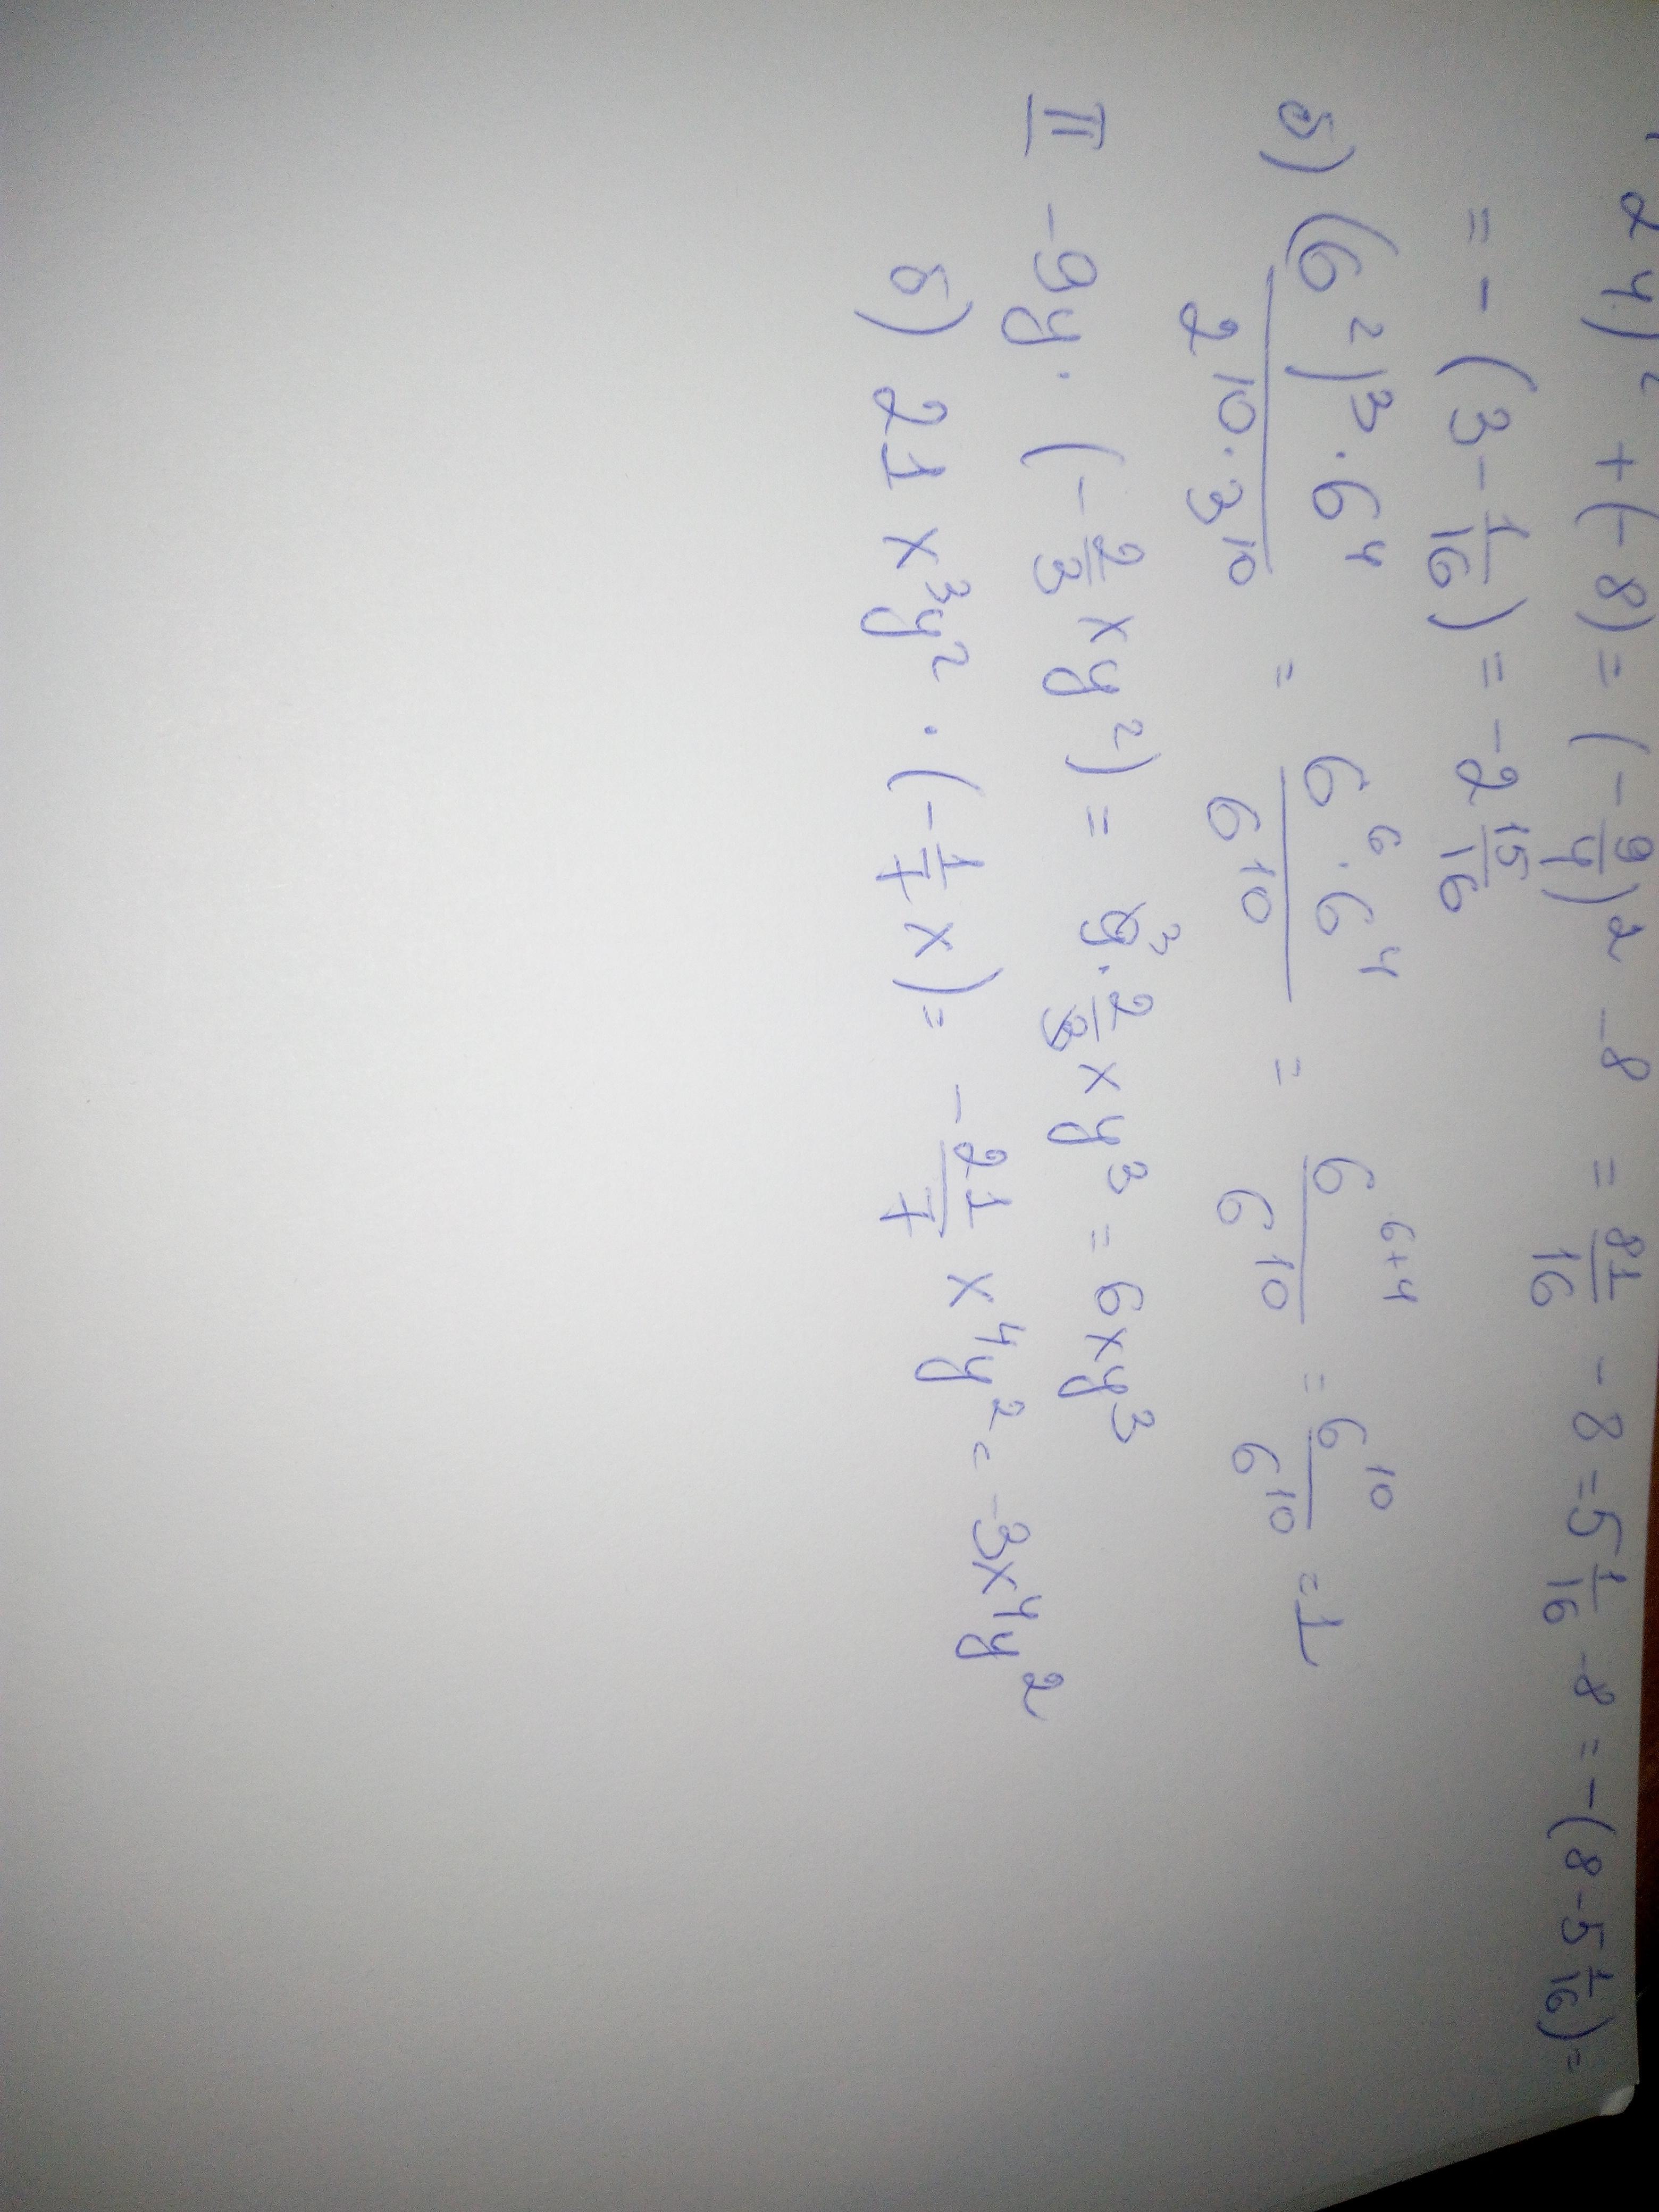 2 4)² + (- 8) = (- 9/4)² - 8 = 81/16 - 8 = 5 1/16 - 8 = - (8 - 5 1/16) =
= - (3 - 1/16) = - 2 15/16
б) (6²)³ · 6⁴ / 2¹⁰ · 3¹⁰ = 6⁶ · 6⁴ / 6¹⁰ = 6⁶⁺⁴ / 6¹⁰ = 6¹⁰ / 6¹⁰ = 1
II -9y · (- 2/3 xy²) = 9³ · 2/3 xy³ = 6xy³
б) 21 x³y² · (- 1/7 x) = - 21/7 x⁴y² = -3x⁴y²